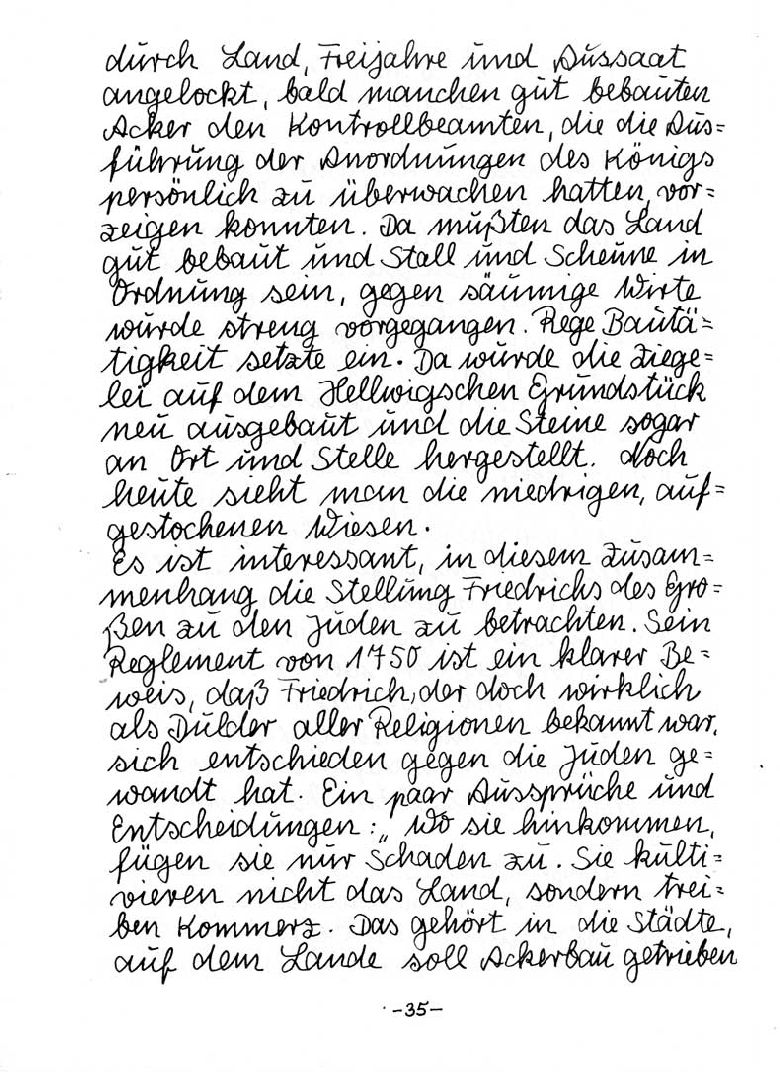 durch Land, Freijahre und Aussaat
angelockt, bald manchen gut bebauten
Acker den Kontrollbeamten, die die Aus=
führung der Anordnungen des Königs
persönlich zu überwachen hatten, vor=
zeigen konnten. Da mußten das Land
gut bebaut und Stall und Scheune in
Ordnung sein, gegen säumige Wirte
wurde streng vorgegangen. Rege Bautä=
tigkeit setzte ein. Da wurde die Ziege=
lei auf dem Hellwigschen Grundstück
neu ausgebaut und die Steine sogar
an Ort und Stelle hergestellt. Noch
heute sieht man die niedrigen, auf=
gestochenen Wiesen.
Es ist interessant, in diesem Zusam=
menhang die Stellung Friedrichs des Gro=
ßen zu den Juden zu betrachten. Sein
Reglement von 1750 ist ein klarer Be=
weis, daß Friedrich, der doch wirklich
als Dulder aller Religionen bekannt war,
sich entschieden gegen die Juden ge=
wandt hat. Ein paar Aussprüche und
Entscheidungen: „Wo sie hinkommen,
fügen sie nur Schaden zu. Sie kulti=
vieren nicht das Land, sondern trei=
ben Kommerz. Das gehört in die Städte,
auf dem Lande soll Ackerbau getrieben
-35-